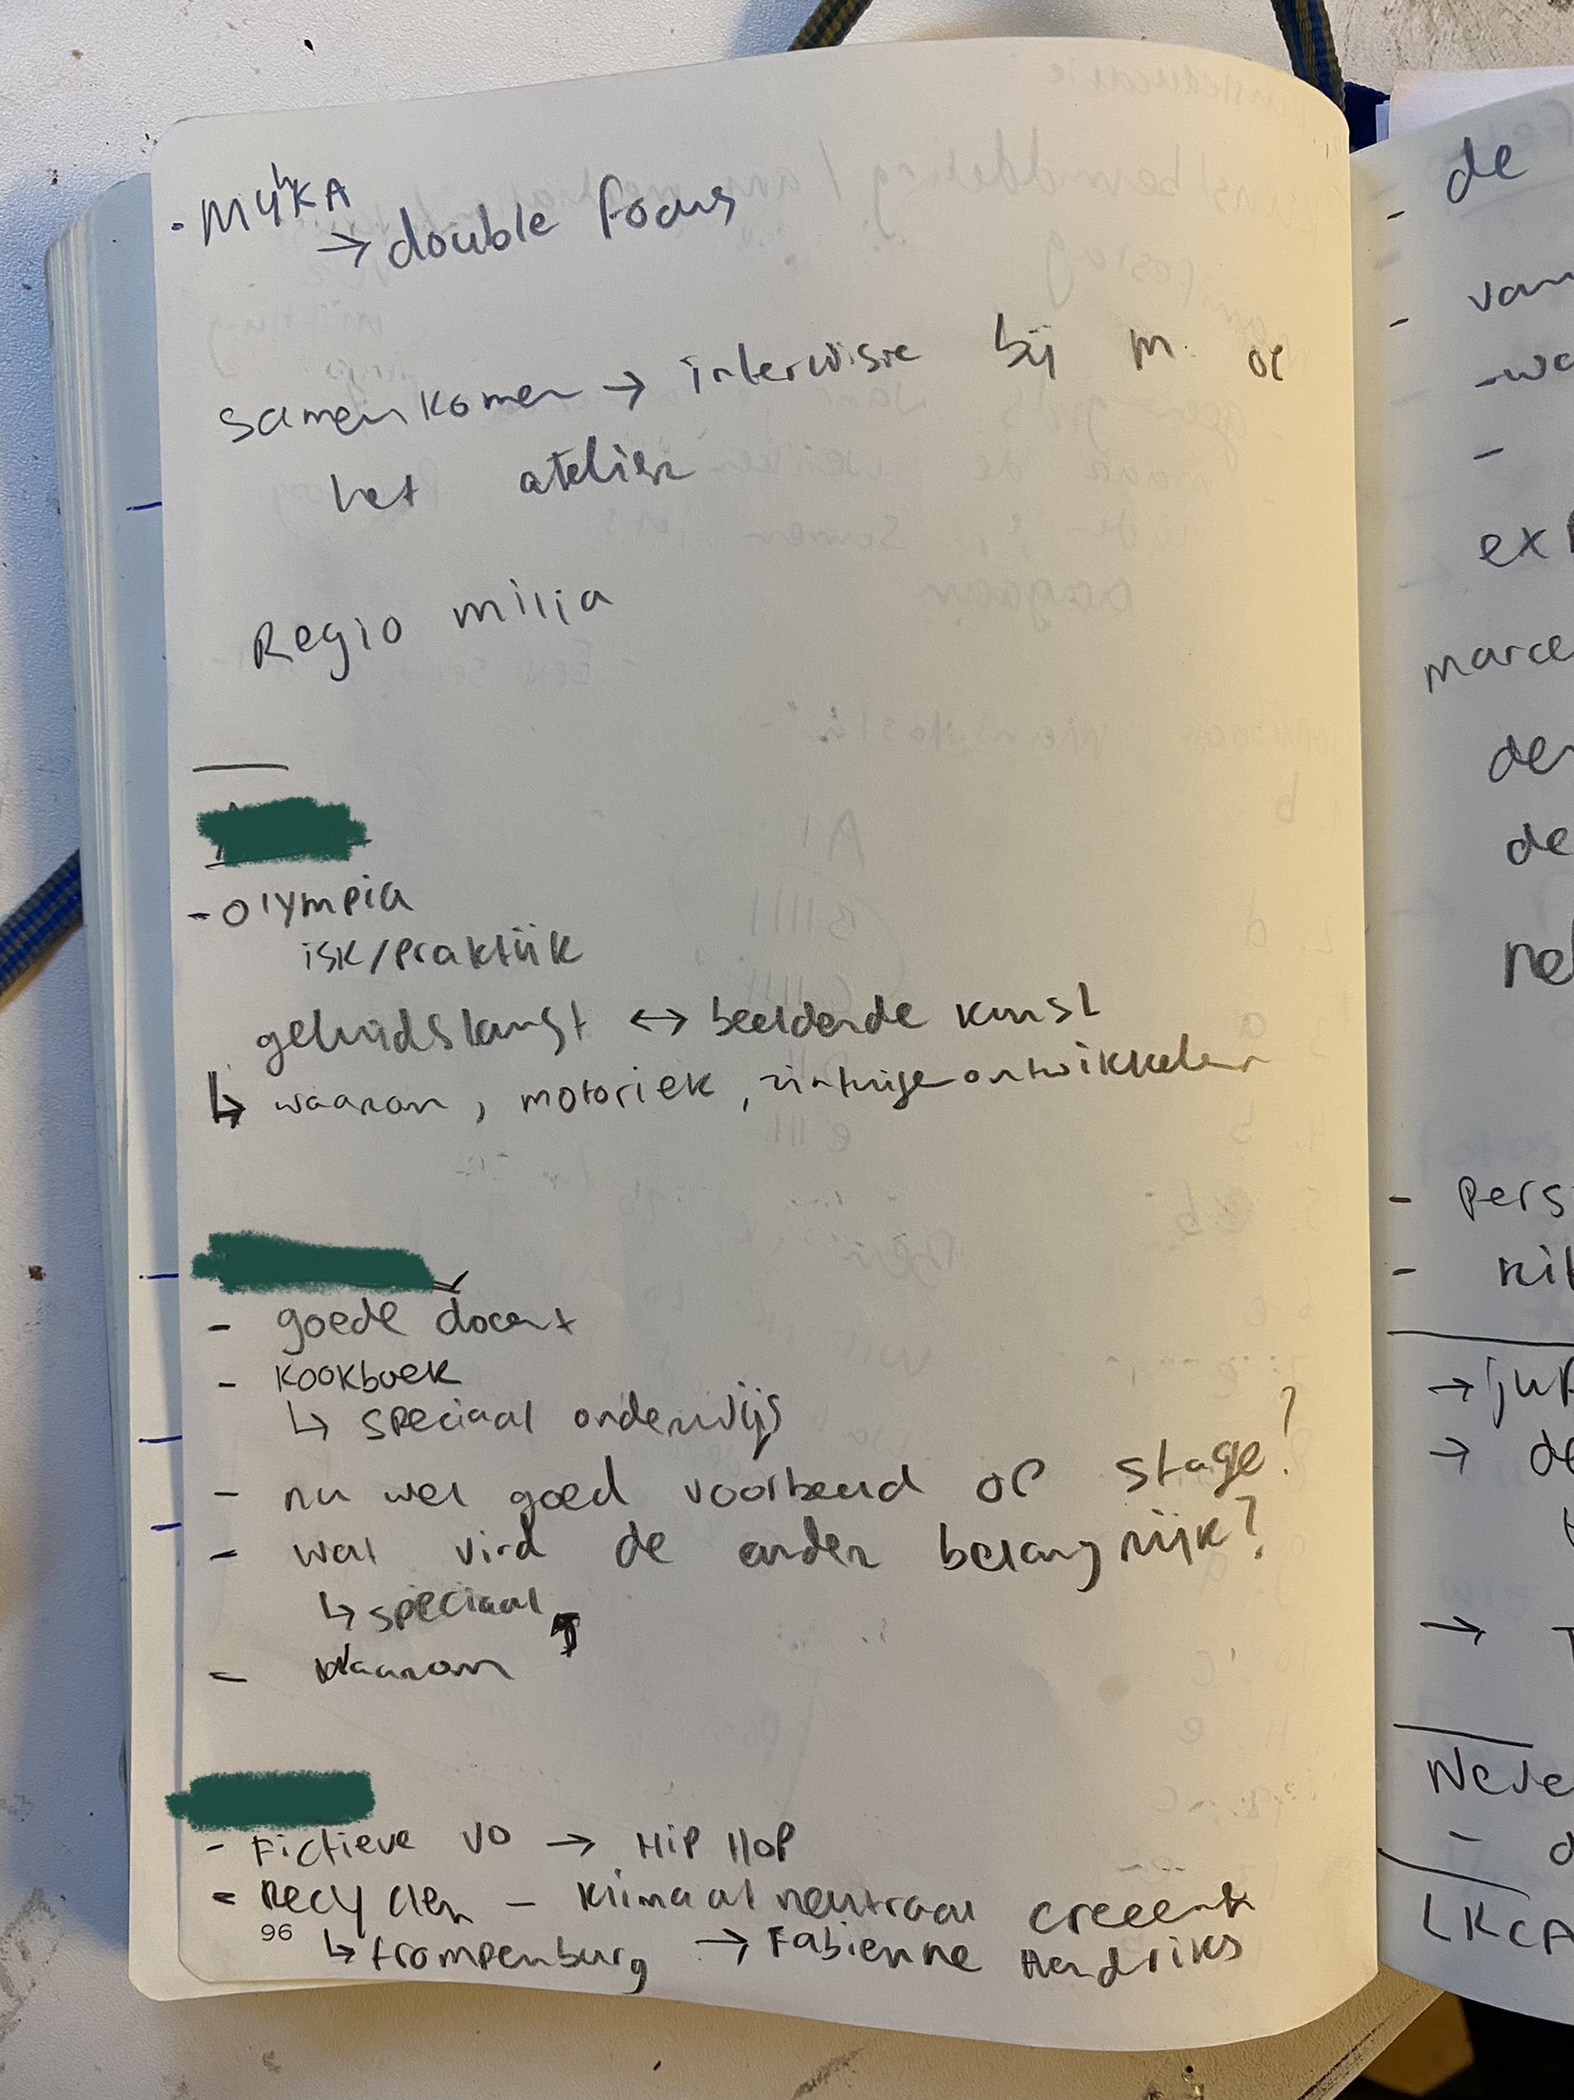 → double focus
samenkomen → intervisie bij M. of
het atelier
Regio milja
- Olympia
isk/praktijk
geluidskunst ↔ beeldende kunst
↳ waarom, motoriek, zintuigen ontwikkelen
- goede docent
- kookboek
↳ speciaal onderwijs
- nu wel goed voorbeeld op stage?
- wat vind de ander belangrijk?
↳ speciaal
- waarom
- Fictieve VO → HIP HOP
- Recyclen - klimaatneutraal
↳ trompenburg → Fabienne Hendriks
96
- de
- van
-
marce
den
de
- pers
-
→
→ de
→
LKCA